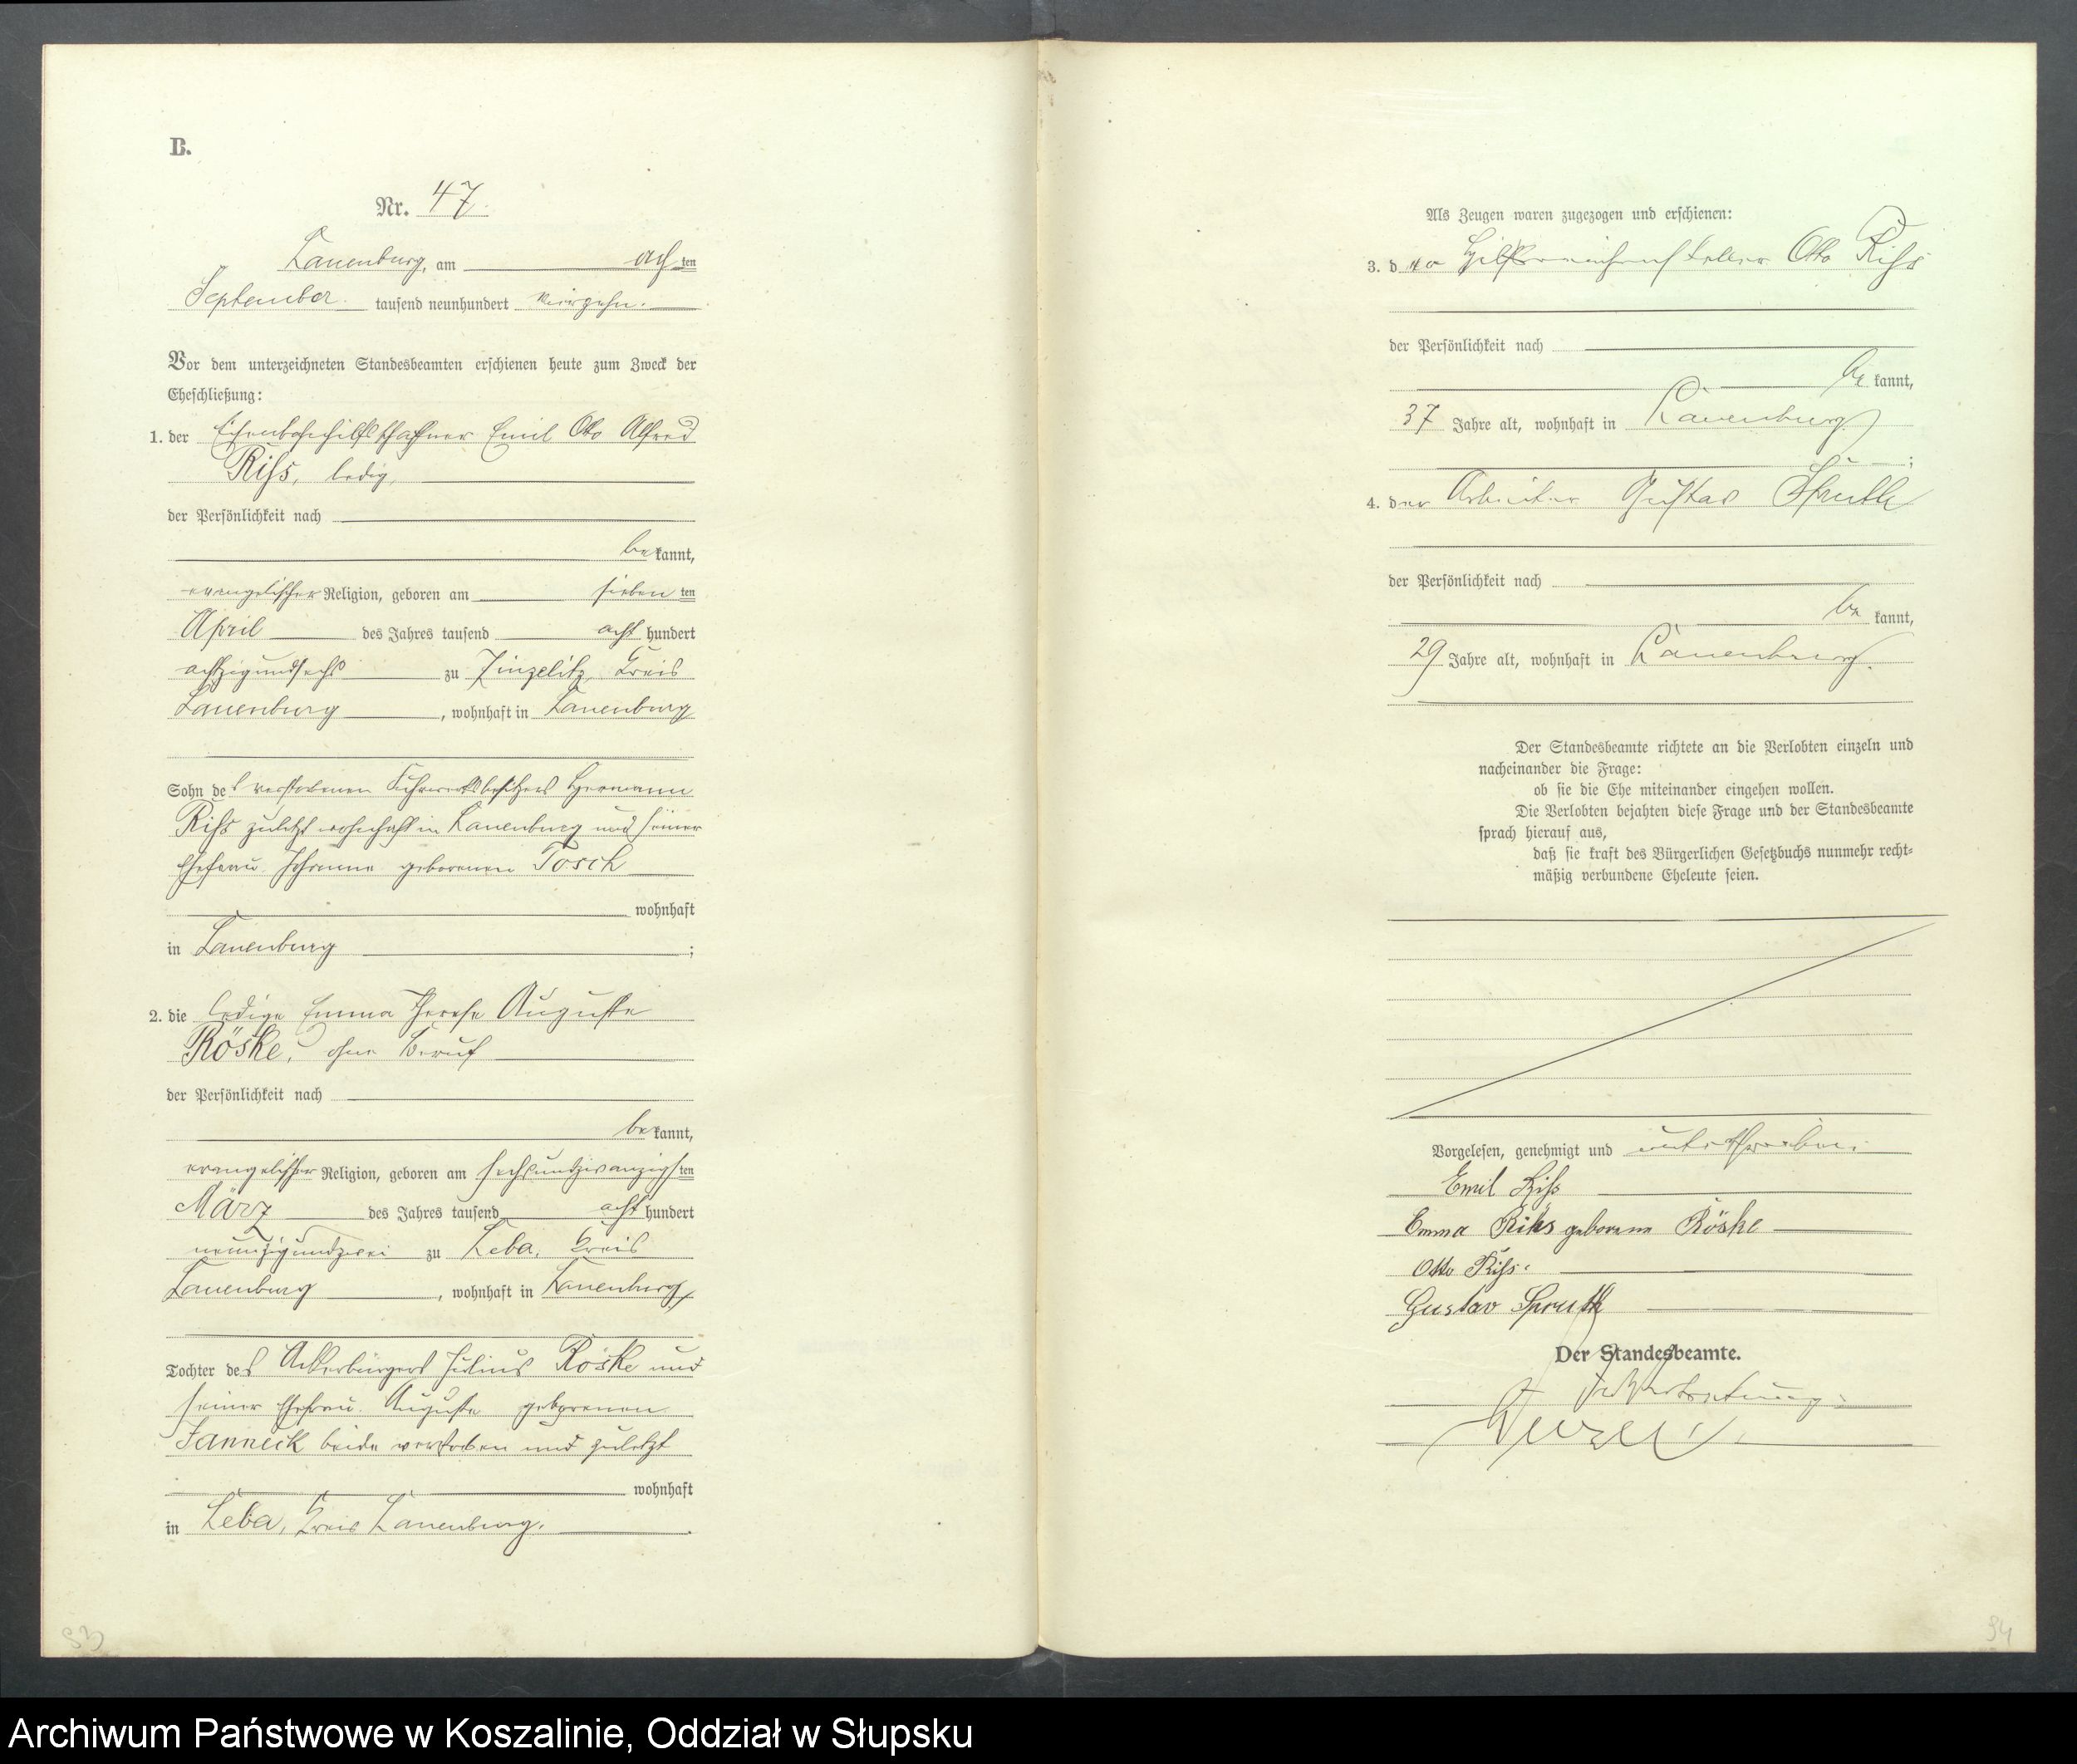 B.
Nr. 47.
Lauenburg, am ach ten
September tausend neunhundert vierzehn.
Vor dem unterzeichneten Standesbeamten erschienen heute zum Zweck der
Eheschließung:
1. der Eisenbahnhilfsschaffner Emil Otto Alfred
Riß, ledig,
der Persönlichkeit nach
be kannt,
evangelischer Religion, geboren am sieben ten
April des Jahres tausend acht hundert
achtzigundsechs zu Zinzelitz, Kreis
Lauenburg, wohnhaft in Lauenburg
Sohn des verstorbenen Fuhrwerksbesitzers Hermann
Riß zuletzt wohnhaft in Lauenburg und seiner
Ehefrau Johanna geborenen Tosch
wohnhaft
in Lauenburg;
2. die ledige Emma Therese Auguste
Röske, ohne Beruf
der Persönlichkeit nach
be kannt,
evangelischer Religion, geboren am sechsundzwanzigsten
März des Jahres tausend acht hundert
neunzigundzwei zu Leba, Kreis
Lauenburg, wohnhaft in Lauenburg
Tochter des Ackerbürgers Julius Röske und
seiner Ehefrau Auguste geborenen
Janneck beide verstorben und zuletzt
wohnhaft
in Leba, Kreis Lauenburg.
93
Als Zeugen waren zugezogen und erschienen:
3. der Otto Riß
der Persönlichkeit nach
be kannt,
37 Jahre alt, wohnhaft in Lauenburg
;
4. der Arbeiter Gustav Spruth
der Persönlichkeit nach
be kannt,
29 Jahre alt, wohnhaft in Lauenburg.
Der Standesbeamte richtete an die Verlobten einzeln und
nacheinander die Frage:
ob sie die Ehe miteinander eingehen wollen.
Die Verlobten bejahten diese Frage und der Standesbeamte
sprach hierauf aus,
daß sie kraft des Bürgerlichen Gesetzbuchs nunmehr recht-
mäßig verbundene Eheleute seien.
Vorgelesen, genehmigt und unterschrieben:
Emil Riß
Emma Riks geborene Röske
Otto Riß.
Gustav Spruth
Der Standesbeamte.
In Vertretung:
94
Archiwum Państwowe w Koszalinie, Oddział w Słupsku